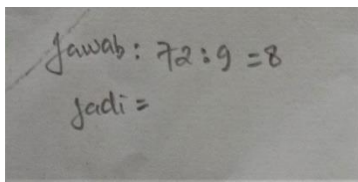 Jawab: 72:9=8
Jadi=